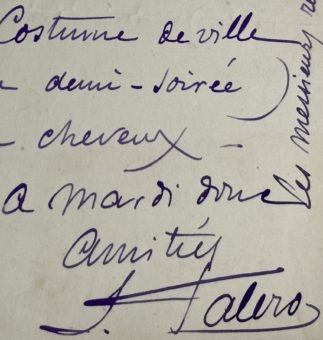 Costume de ville
demi-soirée
- cheveux -
a mardi donc
Amitiés
les messieurs